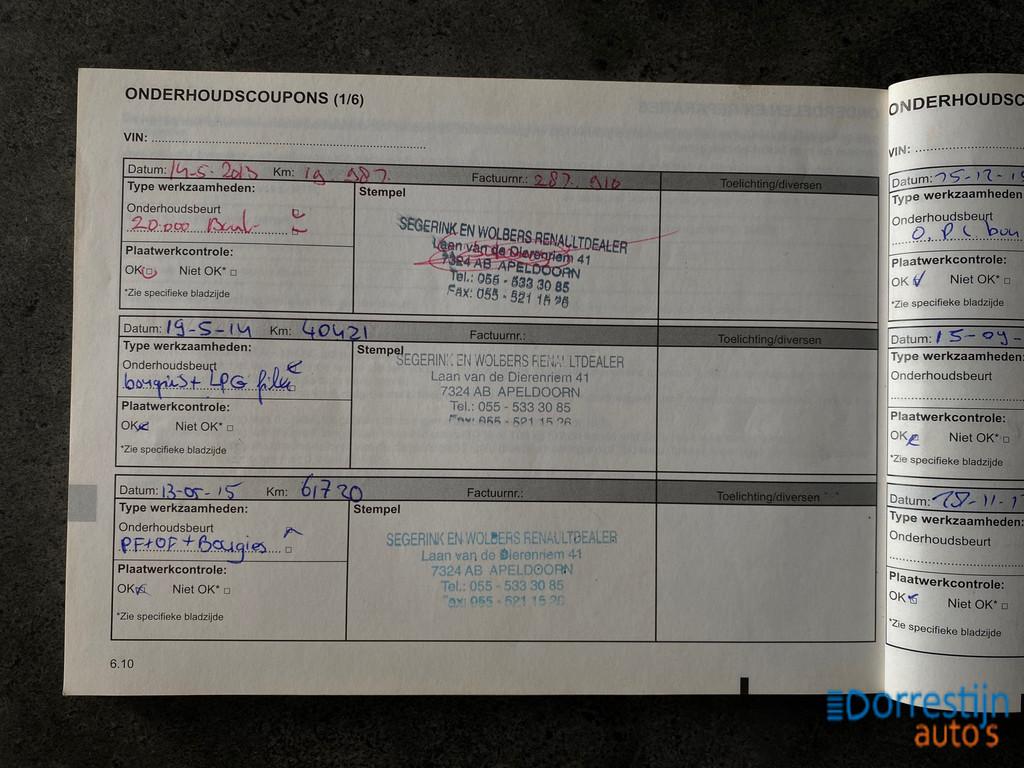 ONDERHOUDSCOUPONS (1/6)
VIN:
Datum: 14-5-2013 Km: 19 987 Factuurnr.: 287.910 Toelichting/diversen
Type werkzaamheden: Stempel
Onderhoudsbeurt
20.000 Beurt
Plaatwerkcontrole:
OK Niet OK*
*Zie specifieke bladzijde
SEGERINK EN WOLBERS RENAULTDEALER
Laan van de Dierenriem 41
7324 AB APELDOORN
Tel.: 055 - 533 30 85
Fax: 055 - 521 15 26
Datum: 19-5-14 Km: 40421 Factuurnr.: Toelichting/diversen
Type werkzaamheden: Stempel
Onderhoudsbeurt
bougies + LPG filter
Plaatwerkcontrole:
OK Niet OK*
*Zie specifieke bladzijde
SEGERINK EN WOLBERS RENAULTDEALER
Laan van de Dierenriem 41
7324 AB APELDOORN
Tel.: 055 - 533 30 85
Fax: 055 - 521 15 26
Datum: 13-05-15 Km: 61720 Factuurnr.: Toelichting/diversen
Type werkzaamheden: Stempel
Onderhoudsbeurt
PF+OF+Bougies
Plaatwerkcontrole:
OK Niet OK*
*Zie specifieke bladzijde
SEGERINK EN WOLBERS RENAULTDEALER
Laan van de Dierenriem 41
7324 AB APELDOORN
Tel.: 055 - 533 30 85
Fax: 055 - 521 15 26
6.10
ONDERHOUDSC
VIN:
Datum: 15-12-15
Type werkzaamheden
Onderhoudsbeurt
Plaatwerkcontrole:
OK Niet OK*
*Zie specifieke bladzijde
Datum: 15-09-
Type werkzaamheden
Onderhoudsbeurt
Plaatwerkcontrole:
OK Niet OK*
*Zie specifieke bladzijde
Datum: 28-11-1
Type werkzaamheden
Onderhoudsbeurt
Plaatwerkcontrole:
OK Niet OK*
*Zie specifieke bladzijde
Dorrestijn
auto's